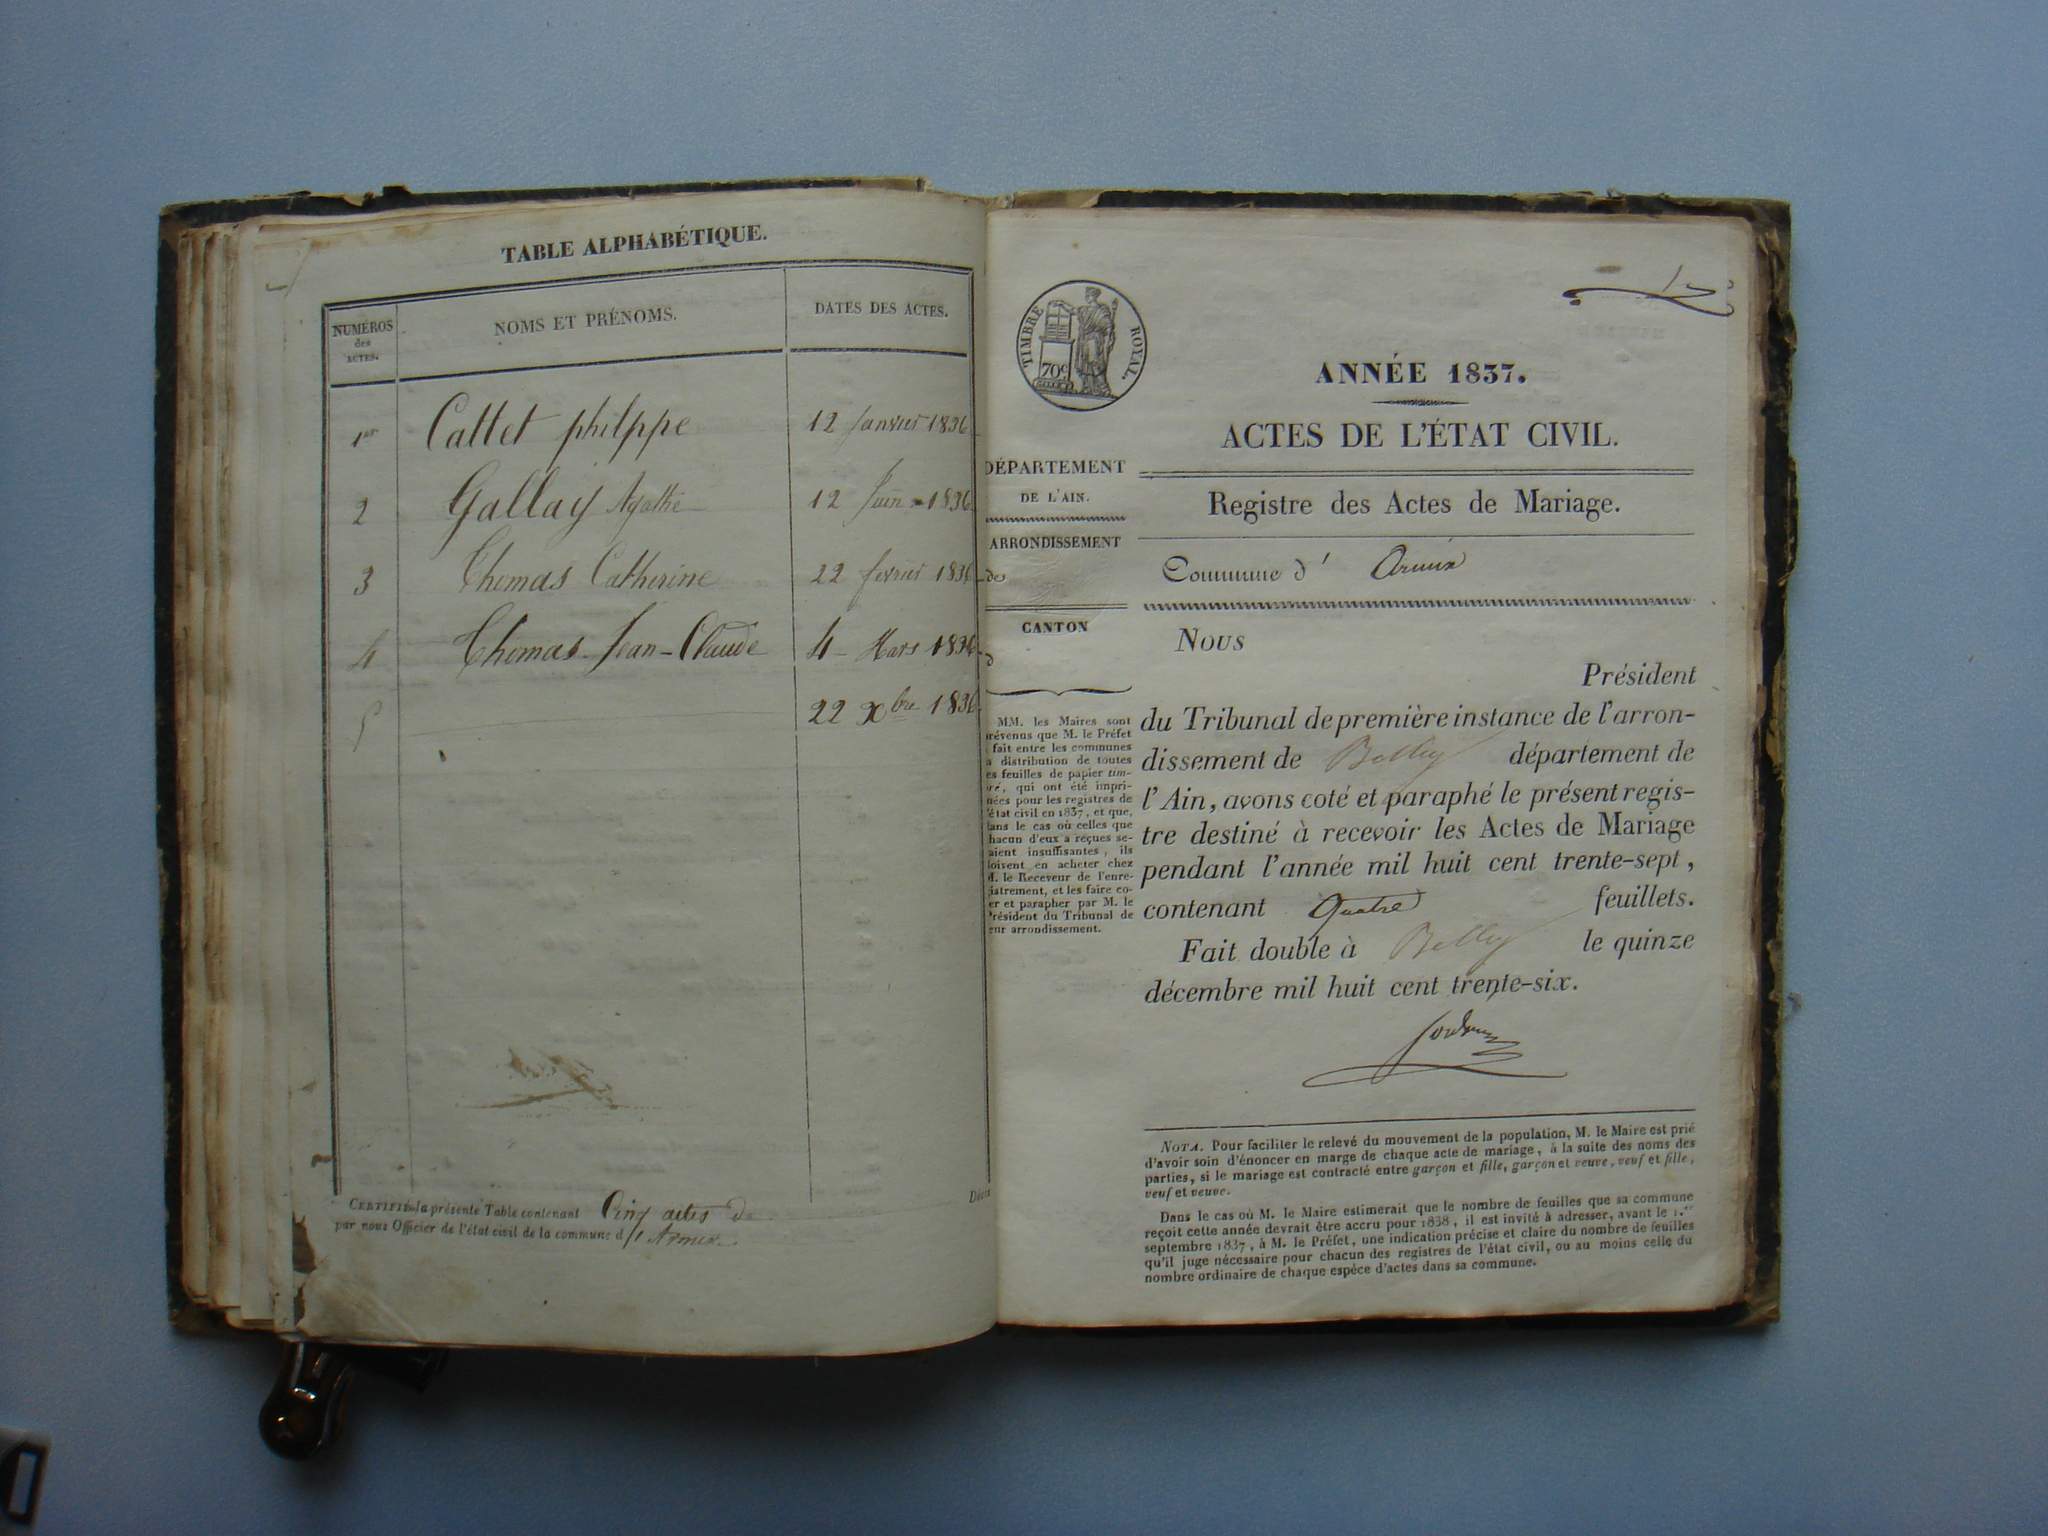 TABLE ALPHABÉTIQUE.
NUMÉROS des ACTES.
NOMS ET PRÉNOMS.
DATES DES ACTES.
1er Cattet philppe 12 Janvier 1836
2 Gallay Agathe 12 Juin 1836
3 Thomas Catherine 22 fevrier 1836
4 Thomas Jean-Claude 4 Mars 1836
5 22 Xbre 1836
CERTIFIÉ la présente Table contenant Cinq actes de
par nous Officier de l'état civil de la commune d'Armix
TIMBRE ROYAL.
70c
DÉPARTEMENT
DE L'AIN.
ARRONDISSEMENT
de
CANTON
d
MM. les Maires sont
révenus que M. le Préfet
fait entre les communes
a distribution de toutes
es feuilles de papier tim-
ré, qui ont été impri-
nées pour les registres de
'état civil en 1837, et que,
ans le cas où celles que
hacun d'eux a reçues se-
aient insuffisantes, ils
oivent en acheter chez
M. le Receveur de l'enre-
istrement, et les faire co-
er et parapher par M. le
Président du Tribunal de
eur arrondissement.
1
ANNÉE 1837.
ACTES DE L'ÉTAT CIVIL.
Registre des Actes de Mariage.
Commune d' Armix
Nous
Président
du Tribunal de première instance de l'arron-
dissement de Belley département de
l'Ain, avons coté et paraphé le présent regis-
tre destiné à recevoir les Actes de Mariage
pendant l'année mil huit cent trente-sept,
contenant Quatre feuillets.
Fait double à Belley le quinze
décembre mil huit cent trente-six.
NOTA. Pour faciliter le relevé du mouvement de la population, M. le Maire est prié
d'avoir soin d'énoncer en marge de chaque acte de mariage, à la suite des noms des
parties, si le mariage est contracté entre garçon et fille, garçon et veuve, veuf et fille,
veuf et veuve.
Dans le cas où M. le Maire estimerait que le nombre de feuilles que sa commune
reçoit cette année devrait être accru pour 1838, il est invité à adresser, avant le 1.er
septembre 1837, à M. le Préfet, une indication précise et claire du nombre de feuilles
qu'il juge nécessaire pour chacun des registres de l'état civil, ou au moins celle du
nombre ordinaire de chaque espèce d'actes dans sa commune.